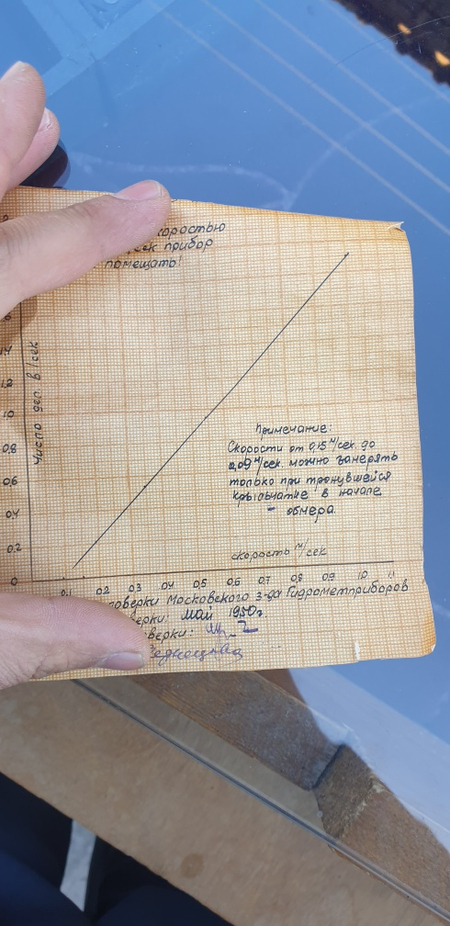 скоростью
сек прибор
помещать!
Число дел. в 1 сек
1.2
1.0
0.8
0.6
0.4
0.2
0
Примечание:
Скорости от 0,15 м/сек. до
0,09 м/сек. можно замерять
только при тронувшейся
крыльчатке в начале
- обмера.
скорость м/сек
0.1 0.2 0.3 0.4 0.5 0.6 0.7 0.8 0.9 1.0 1.1
поверки Московского з-да Гидрометприборов
верки: май 1950г.
оверки: